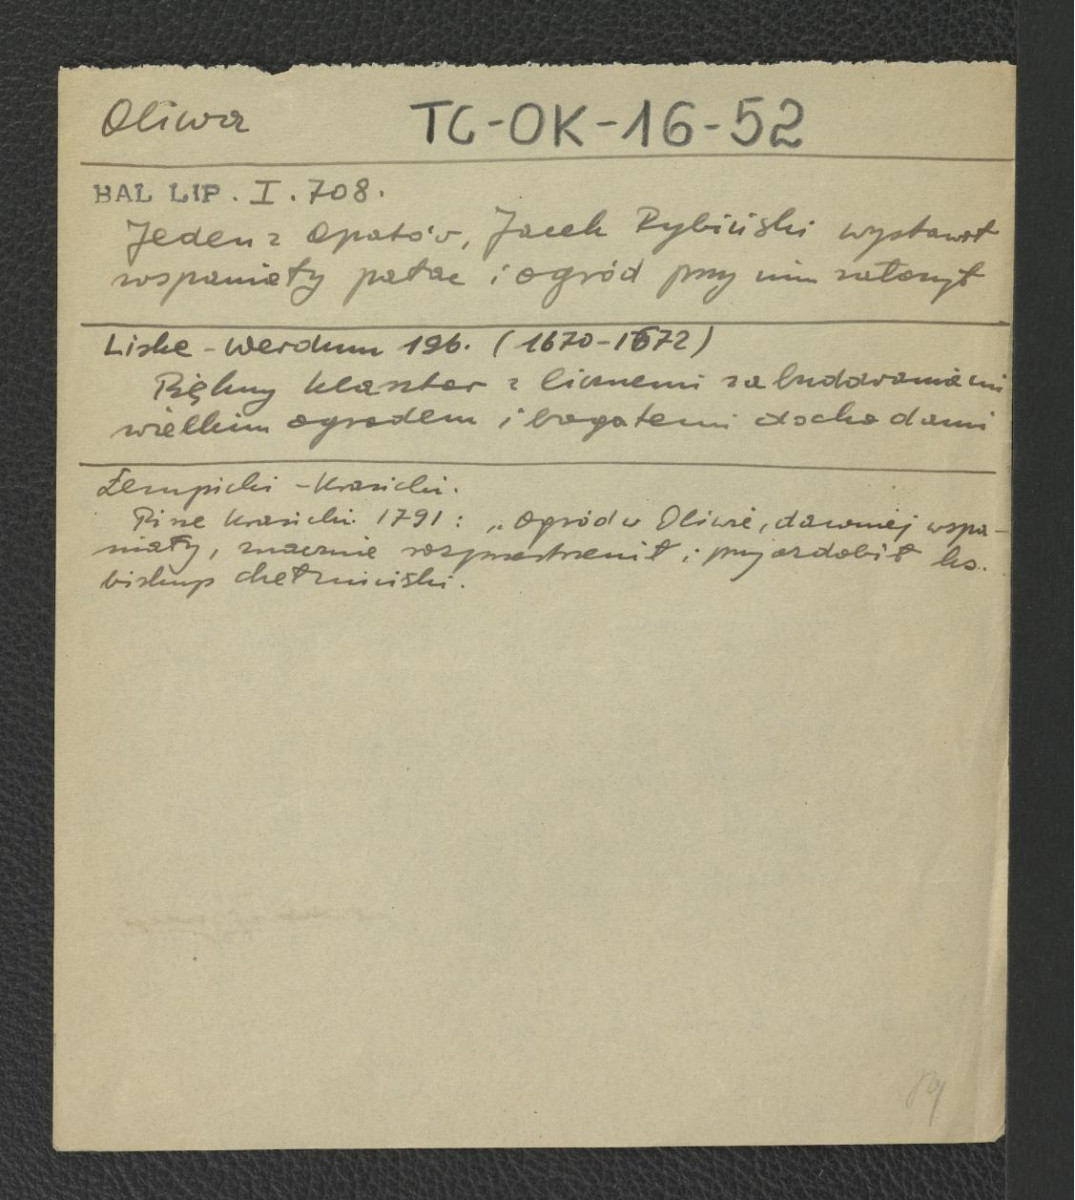 Oliwa TC-OK-16-52
BAL LIP. I. 708.
Jeden z Opatów, Jacek Rybiński wystawił
wspaniały pałac i ogród przy nim założył
Liske - Werdum 196. (1670-1672)
Piękny klasztor z licznemi zabudowaniami
wielkim ogrodem i bogatemi dochodami
Łempicki - Krasicki.
Pisze Krasicki 1791: „Ogród w Oliwie, dawniej wspa-
niały, znacznie rozprzestrzenił i przyozdobił ks.
biskup chełmiński.